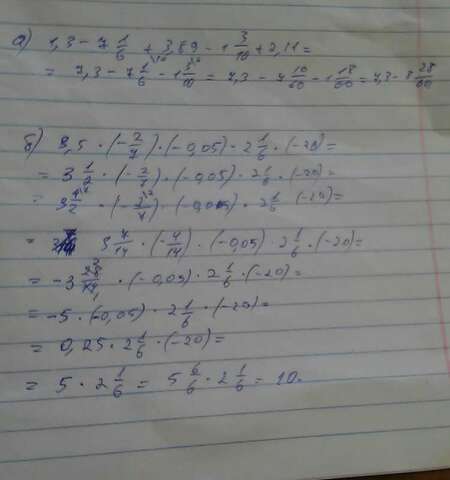 а) 1,3 - 7 1/6 + 3,89 - 1 3/10 + 2,11 =
= 7,3 - 7 1/6 - 1 3/10 = 7,3 - 7 10/60 - 1 18/60 = 7,3 - 8 28/60
б) 3,5 · (-2/7) · (-0,05) · 2 1/6 · (-20) =
= 3 1/2 · (-2/7) · (-0,05) · 2 1/6 · (-20) =
= 3 1/2 · (-2/7) · (-0,05) · 2 1/6 (-20) =
= 3 7/14 · (-4/14) · (-0,05) · 2 1/6 · (-20) =
= -3 28/14 · (-0,05) · 2 1/6 · (-20) =
= -5 · (-0,05) · 2 1/6 · (-20) =
= 0,25 · 2 1/6 · (-20) =
= 5 · 2 1/6 = 5 6/6 · 2 1/6 = 10.